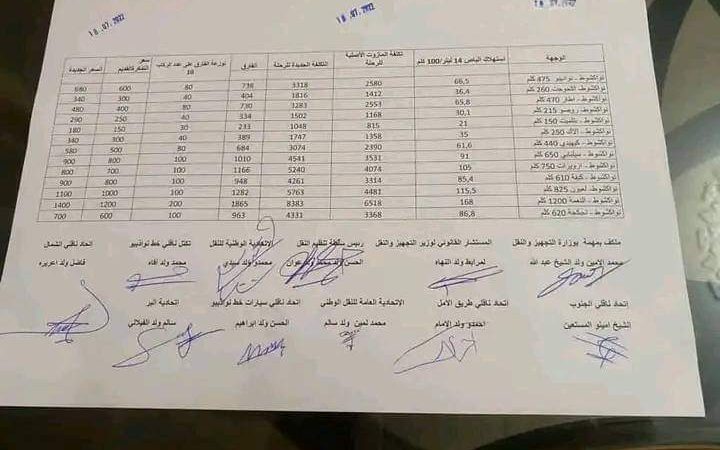 18.07.2022
18.07.2022
18.07.2022
الوجهة استهلاك الباص 14 ليتر/100 كلم تكلفة المازوت الأصلية للرحلة التكلفة الجديدة للرحلة الفارق توزعة الفارق على عدد الركاب 10 سعر التذكرة القديم السعر الجديدة
نواكشوط - نواذيبو 475 كلم 66,5 2580 3318 738 80 600 680
نواكشوط - 260 كلم 36,4 1412 1816 404 40 300 340
نواكشوط - اطار 470 كلم 65,8 2553 3283 730 80 400 480
نواكشوط - روصو 215 كلم 30,1 1168 1502 334 40 250 290
نواكشوط - بتلميت 150 كلم 21 815 1048 233 30 150 180
نواكشوط - الاك 250 كلم 35 1358 1747 389 40 300 340
نواكشوط - كيهيدي 440 كلم 61,6 2390 3074 684 80 500 580
نواكشوط - سيلبابي 650 كلم 91 3531 4541 1010 100 800 900
نواكشوط - ازويرات 750 كلم 105 4074 5240 1166 100 700 800
نواكشوط - كيفة 610 كلم 85,4 3314 4261 948 100 800 900
نواكشوط - لعيون 825 كلم 115,5 4481 5763 1282 100 1000 1100
نواكشوط - النعمة 1200 كلم 168 6518 8383 1865 200 1200 1400
نواكشوط - تجكجة 620 كلم 86,8 3368 4331 963 100 600 700
مكلف بمهمة بوزارة التجهيز والنقل المستشار القانوني لوزير التجهيز والنقل رئيس سلطة تنظيم النقل الاتحادية الوطنية للنقل تكتل ناقلي خط نواذيبو اتحاد ناقلي الشمال
محمد الامين ولد الشيخ عبد الله لمرابط ولد التهاه الحسن ولد محمد ولد اعوان محمدو ولد سيدي محمد ولد افاه فاضل ولد اعريره
اتحاد ناقلي الجنوب اتحاد ناقلي طريق الأمل الإتحادية العامة للنقل الوطني اتحاد ناقلي سيارات خط نواذيبو اتحادية البر
الشيخ امينو المستعين احمدو ولد الإمام محمد لمين ولد سالم الحسن ولد ابراهيم سالم ولد الفيلالي